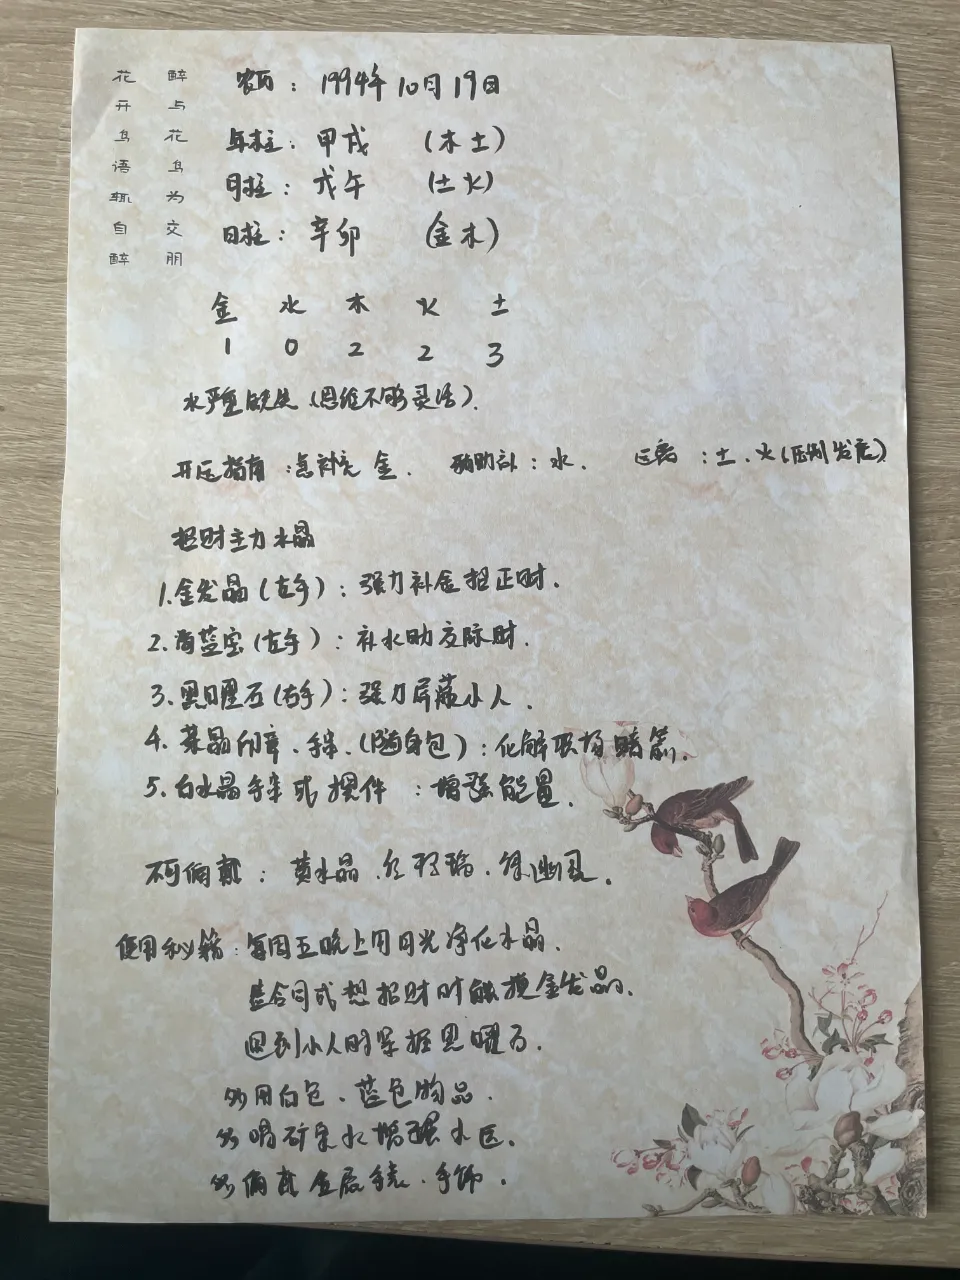 醉与花鸟为交朋
花开鸟语辄自醉
农历：1994年10月19日
年柱：甲戌 （木土）
月柱：戊午 （土火）
日柱：辛卯 （金木）
金 水 木 火 土
1 0 2 2 3
水严重缺失（思维不够灵活）.
开运指南：急补充 金. 辅助补：水. 远离：土、火（压制发展）
招财主力水晶
1.金发晶（左手）：强力补金招正财.
2.海蓝宝（左手）：补水助交际财.
3.黑曜石（右手）：强力屏蔽小人.
4.茶晶印章、手串.（随身包）：化解职场暗箭.
5.白水晶手串或摆件：增强能量.
不可佩戴：黄水晶、红玛瑙、绿幽灵.
使用秘籍：每周五晚上用月光净化水晶.
签合同或想招财时触摸金发晶.
遇到小人时紧握黑曜石.
多用白色、蓝色物品.
多喝矿泉水增强水医.
多佩戴金属手表、手饰.